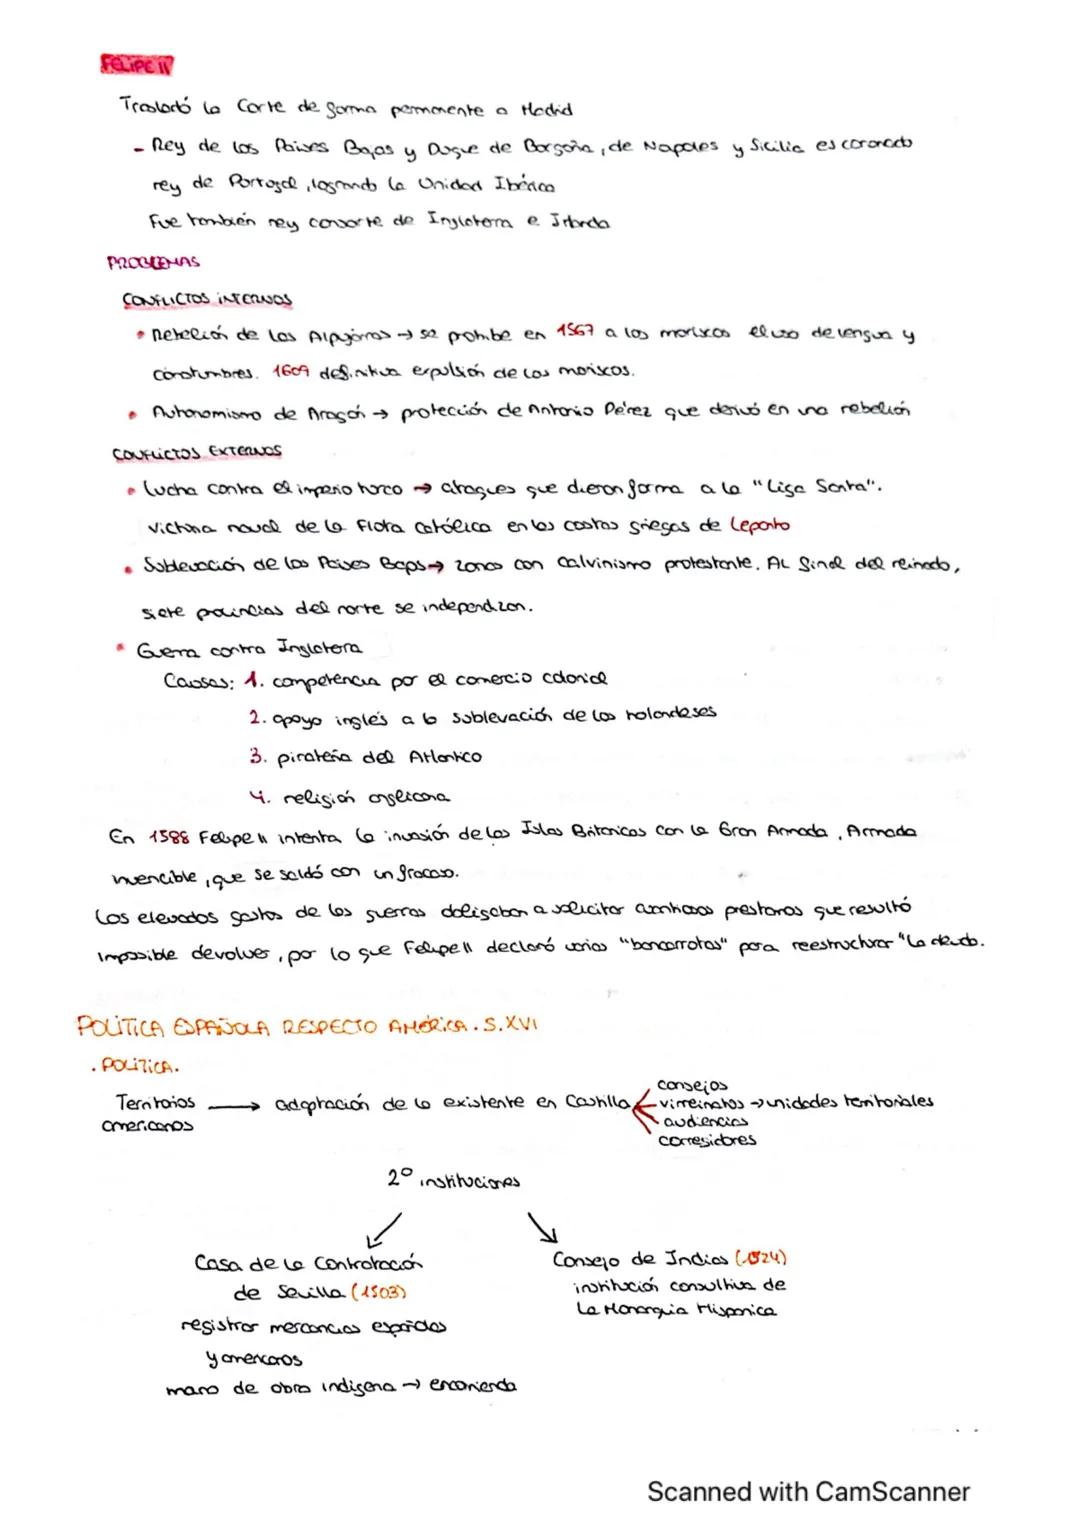 FELIPE II
Trasladó la Corte de forma permanente a Madrid
- Rey de los Paises Bajos y Duque de Borgoña, de Napoles y Sicilia es coronado
rey de Portugal, logrando la Unidad Ibérica
Fue también rey consorte de Inglaterra e Irlanda
PROBLEMAS
CONFLICTOS INTERNOS
• Rebelión de las Alpujarras → se prohibe en 1567 a los moriscos el uso de lengua y
constumbres. 1609 definitiva expulsión de los moriscos.
• Autonomismo de Aragón → protección de Antonio Pérez que derivó en una rebelión
CONFLICTOS EXTERNOS
• Lucha contra el imperio turco → ataques que dieron forma a la "Liga Santa".
Victoria naval de la Flota Católica en las costas griegas de Lepanto
• Sublevación de los Paises Bajos → zonas con calvinismo protestante. Al final del reinado,
siete provincias del norte se independizan.
• Guerra contra Inglaterra
Causas: 1. competencia por el comercio colonial
2. apoyo inglés a la sublevación de los holandeses
3. piratería del Atlantico
4. religión anglicana
En 1588 Felipe II intenta la invasión de las Islas Bitanicas con la Gran Armada, Armada
invencible, que se saldó con un fracaso.
Los elevados gastos de las guerras obligaban a solicitar cuantiosos prestamos que resultó
imposible devolver, por lo que Felipe II declaró varias "bancarrotas" para reestructurar "la deuda.
POLÍTICA ESPAÑOLA RESPECTO AMÉRICA. S.XVI
. POLÍTICA.
consejos
Territorios → adaptación de lo existente en Castilla virreinatos → unidades territoriales
americanos
audiencias
corregidores
2º instituciones
Casa de la Contratación
de Sevilla (1503)
registrar mercancias españolas
y americanas
mano de obra indigena → encomienda
Consejo de Indias (1524)
institución consultiva de
la Monarquia Hispanica
Scanned with CamScanner